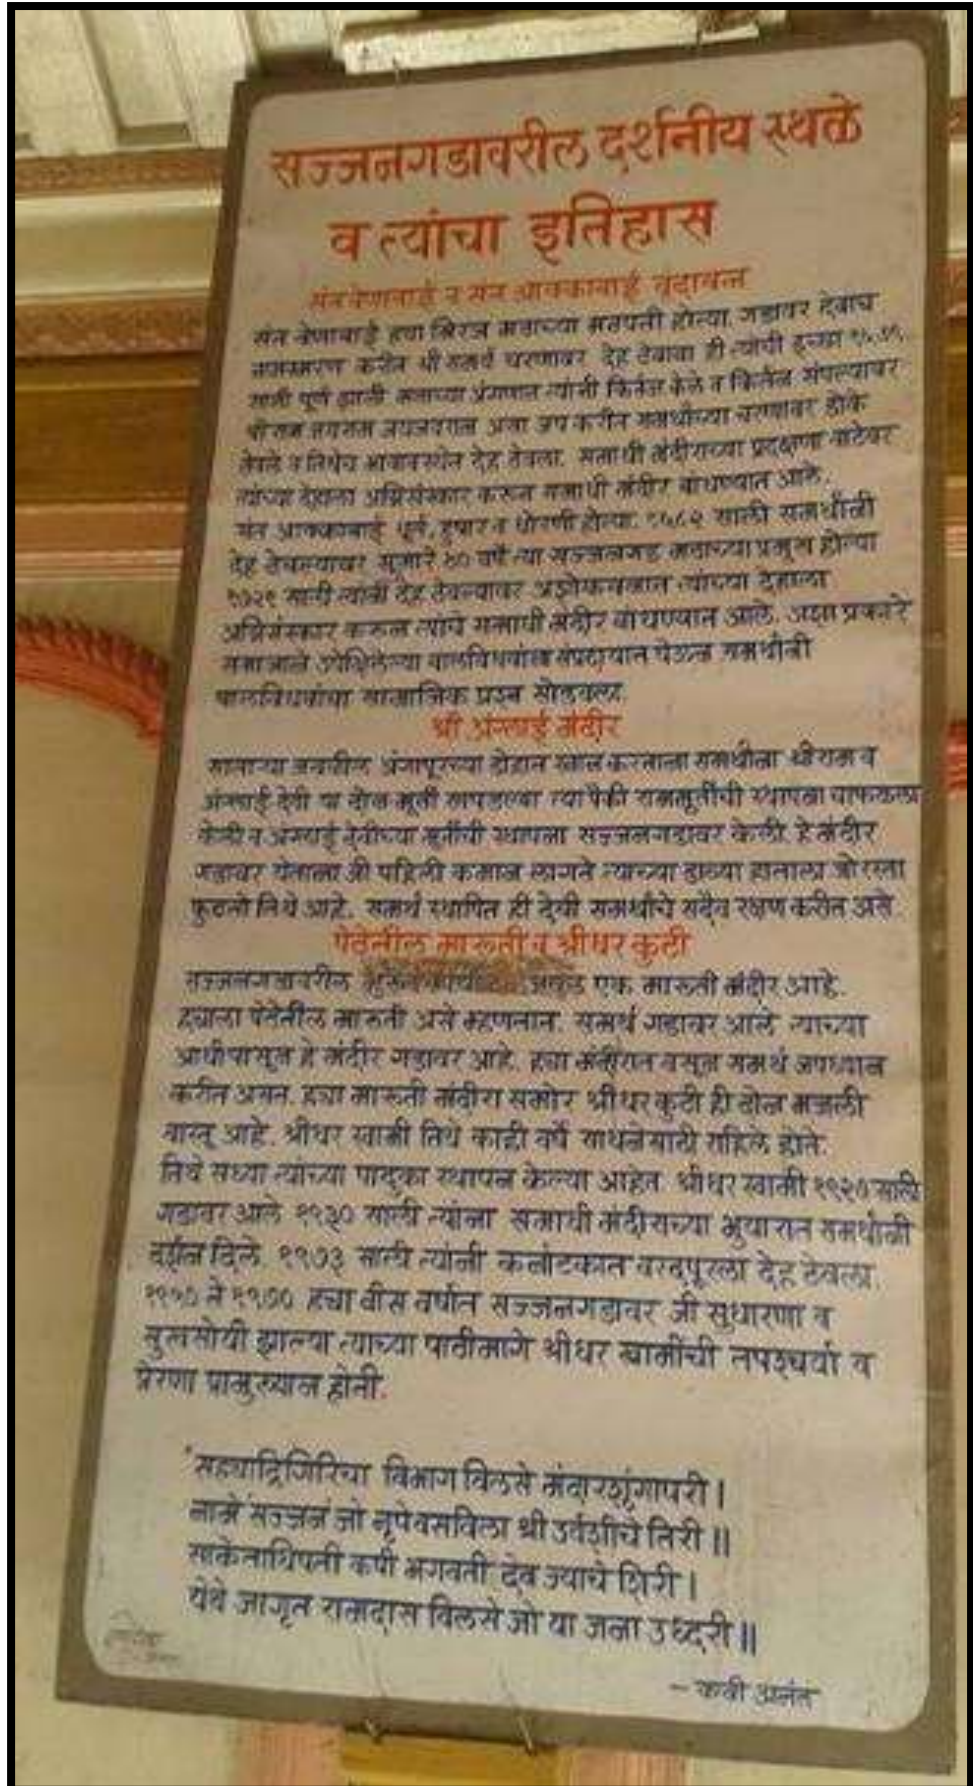 सज्जनगडावरील दर्शनीय स्थळे
व त्यांचा इतिहास
संत वेणाबाई व संत आक्काबाई वृंदावन
संत वेणाबाई ह्या मिरज मठाच्या मठपती होत्या. गडावर देवाचे
नामस्मरण करीत श्री समर्थ चरणावर देह ठेवावा ही त्यांची इच्छा
साली पूर्ण झाली मठाच्या प्रांगणात त्यांनी किर्तन केले व किर्तन संपल्यावर
श्रीराम जयराम जयजयराम असा जप करीत समर्थांच्या चरणावर डोके
ठेवले व तिथेच भावावस्थेत देह ठेवला. समाधी मंदीराच्या प्रदक्षणा वाटेवर
त्यांच्या देहाला अग्निसंस्कार करून समाधी मंदीर बांधण्यात आले.
संत आक्काबाई धूर्त, हुषार व धोरणी होत्या. १६८२ साली समर्थांनी
देह ठेवल्यावर सूमारे ४० वर्षे त्या सज्जनगड मठाच्या प्रमुख होत्या
१७२१ साली त्यांनी देह ठेवल्यावर अशोकवनात त्यांच्या देहाला
अग्निसंस्कार करून त्यांचे समाधी मंदीर बांधण्यात आले. अशा प्रकारे
समाजाने उपेक्षिलेल्या बालविधवांना संप्रदायात घेऊन समर्थांनी
बालविधवांचा सामाजिक प्रश्न सोडवला.
श्री अंग्लाई मंदीर
साताऱ्या जवळील अंगापूरच्या डोहात स्नान करताना समर्थांना श्रीराम व
अंग्लाई देवी या दोन मूर्ती सापडल्या त्यापैकी राममूर्तीची स्थापना चाफळला
केली व अंग्लाई देवीच्या मूर्तीची स्थापना सज्जनगडावर केली. हे मंदीर
गडावर येताना जी पहिली कमान लागते त्याच्या डाव्या हाताला जो रस्ता
फुटतो तिथे आहे. समर्थ स्थापित ही देवी समर्थांचे सदैव रक्षण करीत असे.
पेठेतील मारूती व श्रीधर कुटी
सज्जनगडावरील जवळ एक मारूती मंदीर आहे.
ह्याला पेठेतील मारूती असे म्हणतात. समर्थ गडावर आले त्याच्या
आधीपासून हे मंदीर गडावर आहे. ह्या मंदीरात बसून समर्थ जपध्यान
करीत असत. ह्या मारूती मंदीरा समोर श्रीधर कुटी ही दोन मजली
वास्तू आहे. श्रीधर स्वामी तिथे काही वर्षे साधनेसाठी राहिले होते.
तिथे सध्या त्यांच्या पादुका स्थापन केल्या आहेत. श्रीधर स्वामी १९२७ साली
गडावर आले १९३० साली त्यांना समाधी मंदीराच्या भुयारात समर्थांनी
दर्शन दिले. १९७३ साली त्यांनी कर्नाटकात वरदपूरला देह ठेवला.
१९५० ते १९७० ह्या वीस वर्षात सज्जनगडावर जी सुधारणा व
सुखसोयी झाल्या त्याच्या पाठीमागे श्रीधर स्वामींची तपश्चर्या व
प्रेरणा प्रामुख्यान होती.
'सह्याद्रिगिरिचा विभाग विलसे मंदारशृंगापरी।
नामे सज्जन जो नृपेवसविला श्री उर्वशीचे तिरी॥
साकेताधिपती कपी भगवती देव ज्याचे शिरी।
येथे जागृत रामदास विलसे जो या जना उध्दरी॥
- कवी अनंत